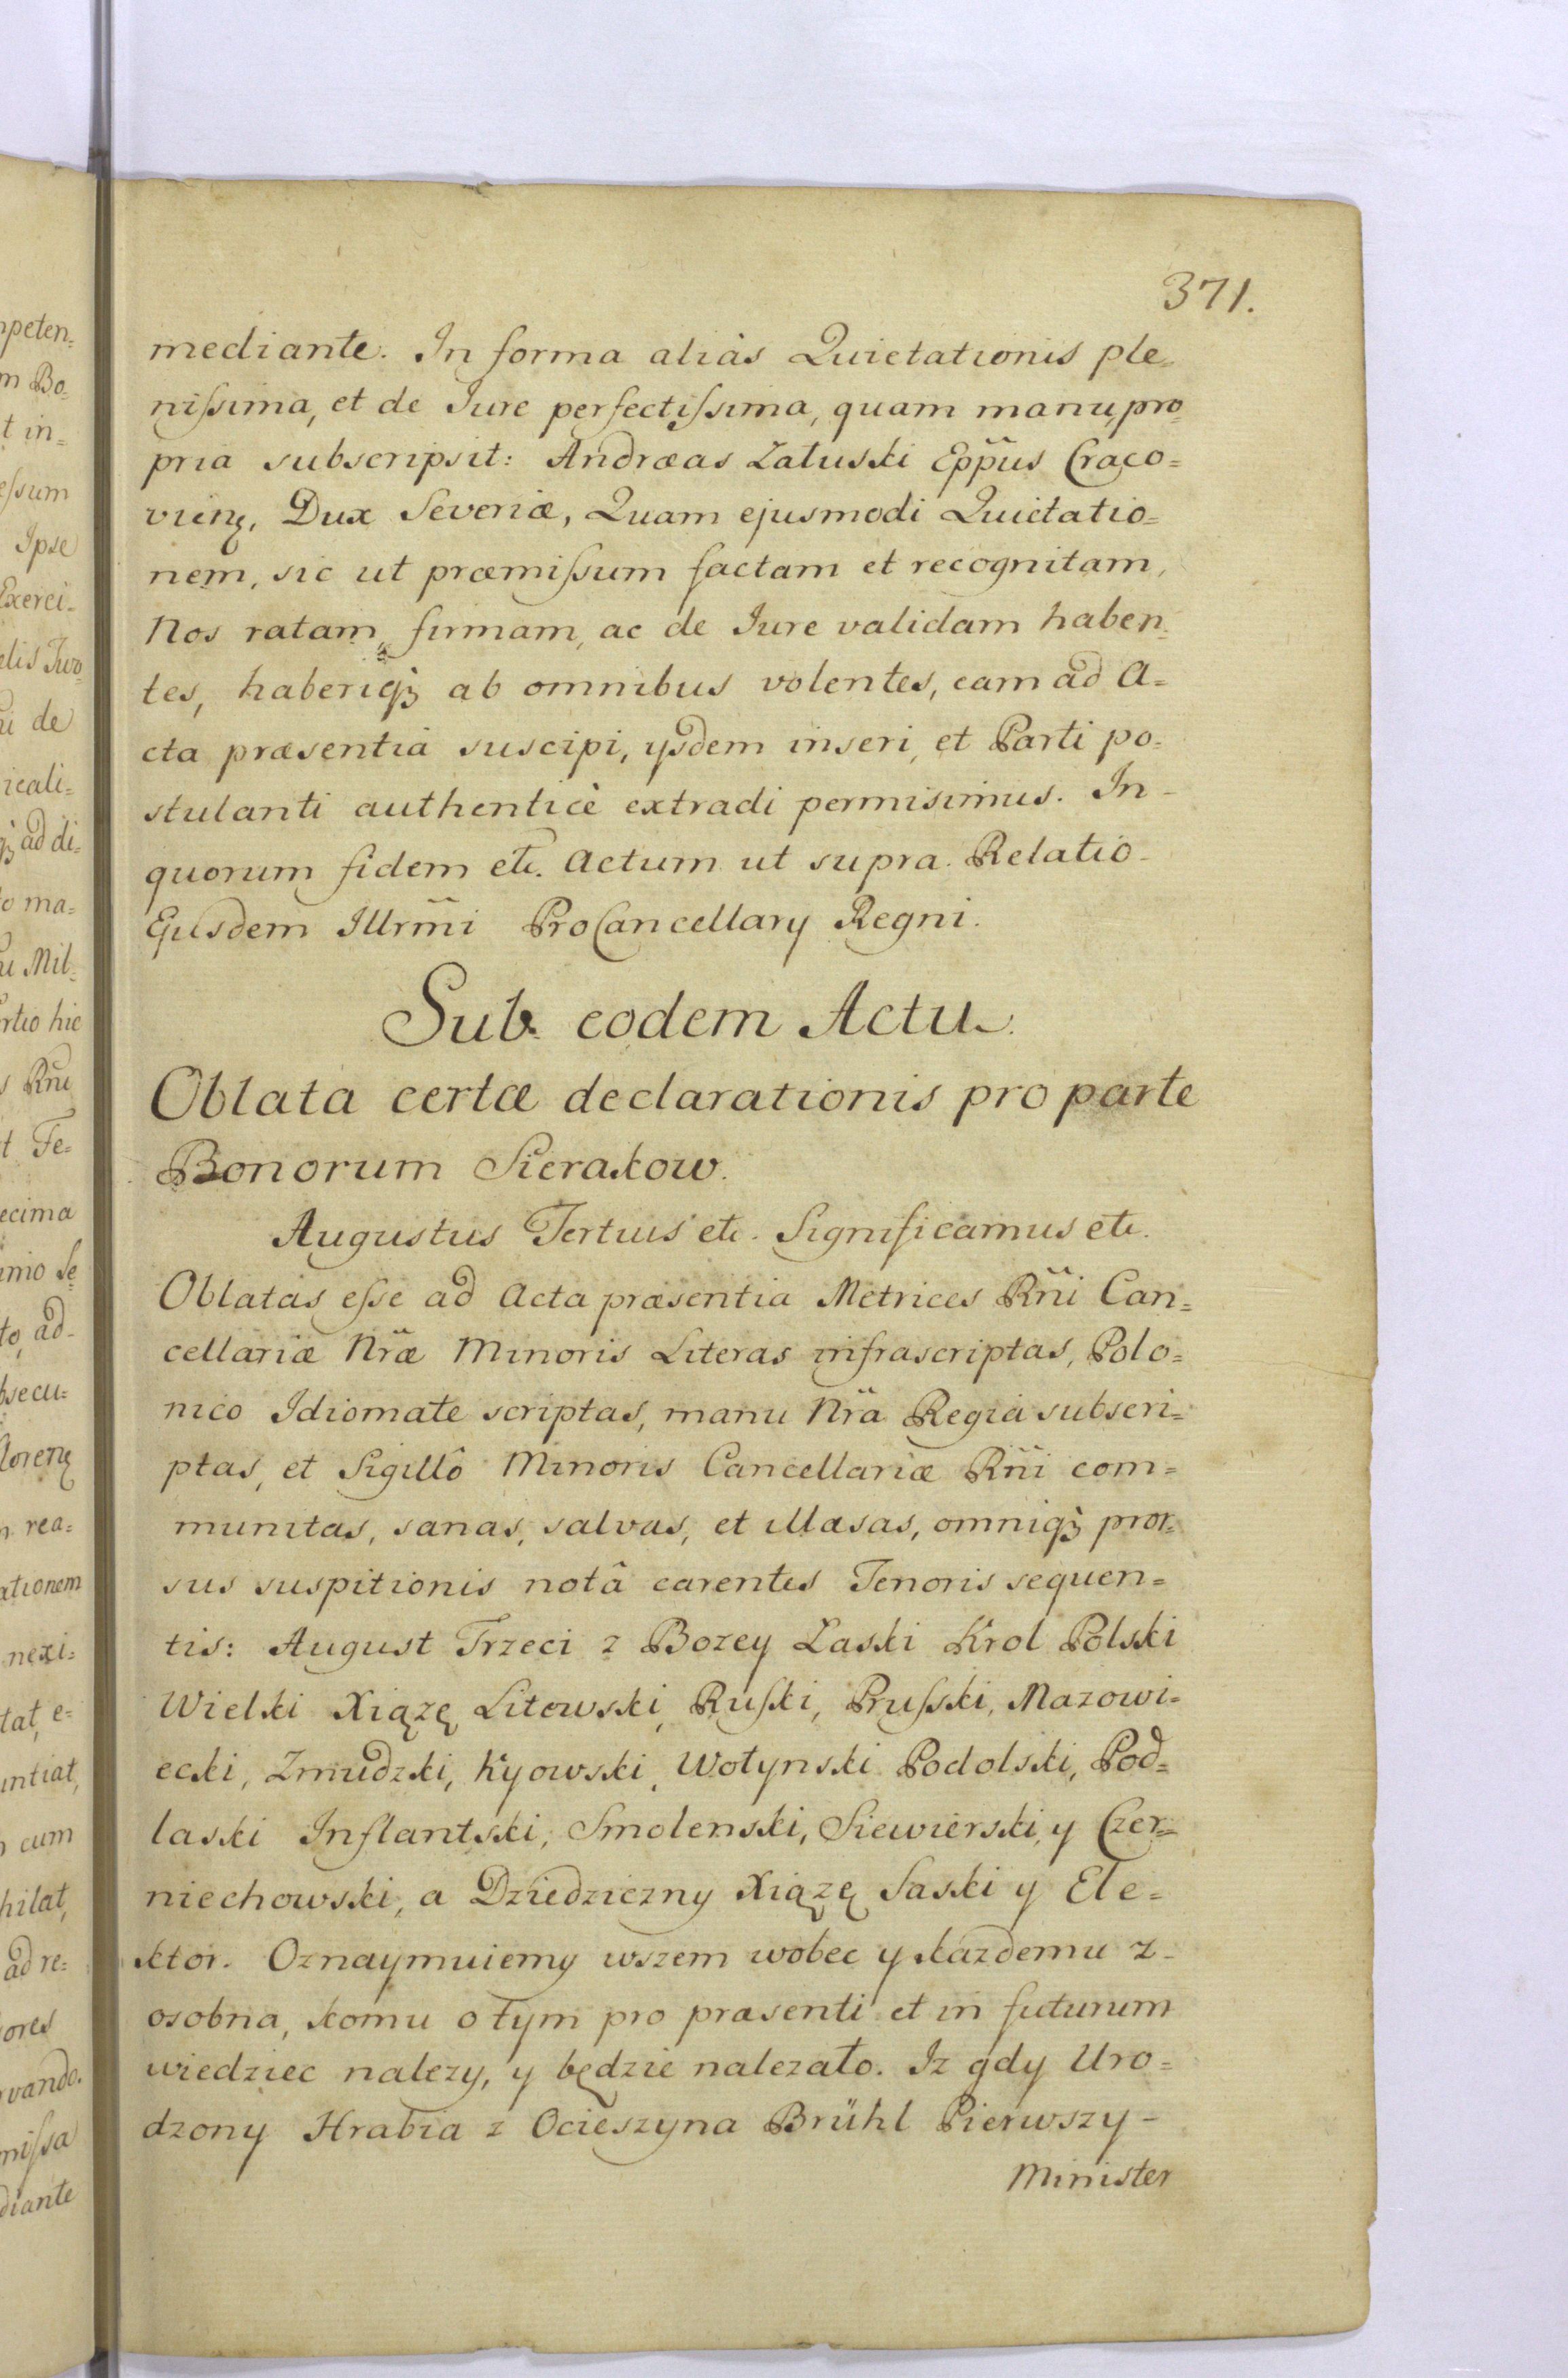 371.
mediante. In forma aliàs Quietationis ple-
nißima, et de Iure perfectißima, quam manu pro-
pria subscripsit: Andræas Załuski Epp̃us Craco=
vieñ. Dux Severiæ, Quam ejusmodi Quietatio=
nem, sic ut præmißum factam et recognitam,
Nos ratam, firmam, ac de Iure validam haben=
tes, haberiq3 ab omnibus volentes, eam ad A=
cta præsentia suscipi, ysdem inseri, et Parti po=
stulanti authenticè extradi permisimus. In-
quorum fidem etc. Actum ut supra. Relatio-
Ejusdem Illrm̃i ProCancellary Regni.
Sub eodem Actu.
Oblata certæ declarationis pro parte
Bonorum Sierakow.
Augustus Tertius etc. Significamus etc.
Oblatas eße ad Acta præsentia Metrices Rñi Can=
cellariæ Nr̃æ Minoris Literas infrascriptas, Polo=
nico Idiomate scriptas, manu Nr̃a Regia subscri=
ptas, et Sigillô Minoris Cancellariæ Rñi com=
munitas, sanas, salvas, et illæsas, omniq3 pror=
sus suspitionis notâ carentes Tenoris sequen=
tis: August Trzeci z Bozey Łaski Krol Polski
Wielki Xiązę Litowski, Rußki, Prußski, Mazowi=
ecki, Zmudzki, Kyowski, Wołynski Podolski, Pod=
laski Inflantski, Smolenski, Siewierski, y Czer=
niechowski, a Dziedziczny Xiązę Saski y Ele=
ktor. Oznaymuiemy wszem wobec y kazdemu z-
osobna, komu o tym pro præsenti et in futurum
wiedziec nalezy, y będzie nalezało. Iz gdy Uro=
dzony Hrabia z Ocieszyna Brühl Pierwszy-
Minister